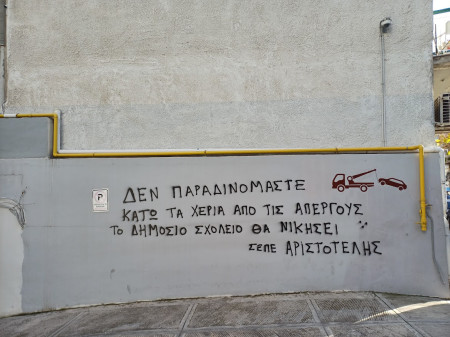 P
ΔΕΝ ΠΑΡΑΔΙΝΟΜΑΣΤΕ
ΚΑΤΩ ΤΑ ΧΕΡΙΑ ΑΠΟ ΤΙΣ ΑΠΕΡΓΟΥΣ
ΤΟ ΔΗΜΟΣΙΟ ΣΧΟΛΕΙΟ ΘΑ ΝΙΚΗΣΕΙ
ΣΕΠΕ ΑΡΙΣΤΟΤΕΛΗΣ